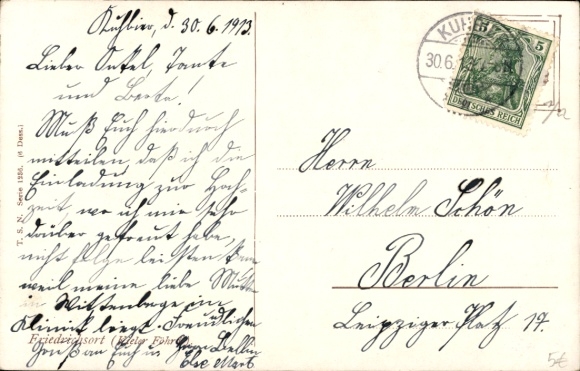 Kuhbier, d. 30.6.1913.
Lieber Onkel, Tante
und Berta!
Muß Euch hierdurch
mitteilen, daß ich die
Einladung zur Hoch-
zeit, wo ich mich sehr
darüber gefreut habe,
nicht Folge leisten kann
weil meine liebe Mutter
in Wittenberge im
Klinick liegt. Freundlichen
Gruß an Euch
Else
T. S. N. Serie 1256. (6 Dess.)
Friedrichsort (Kieler Föhrde)
KUH
30.6.
5 5
DEUTSCHES REICH
Herrn
Wilhelm Schön
Berlin
Leipziger Platz 19.
5€